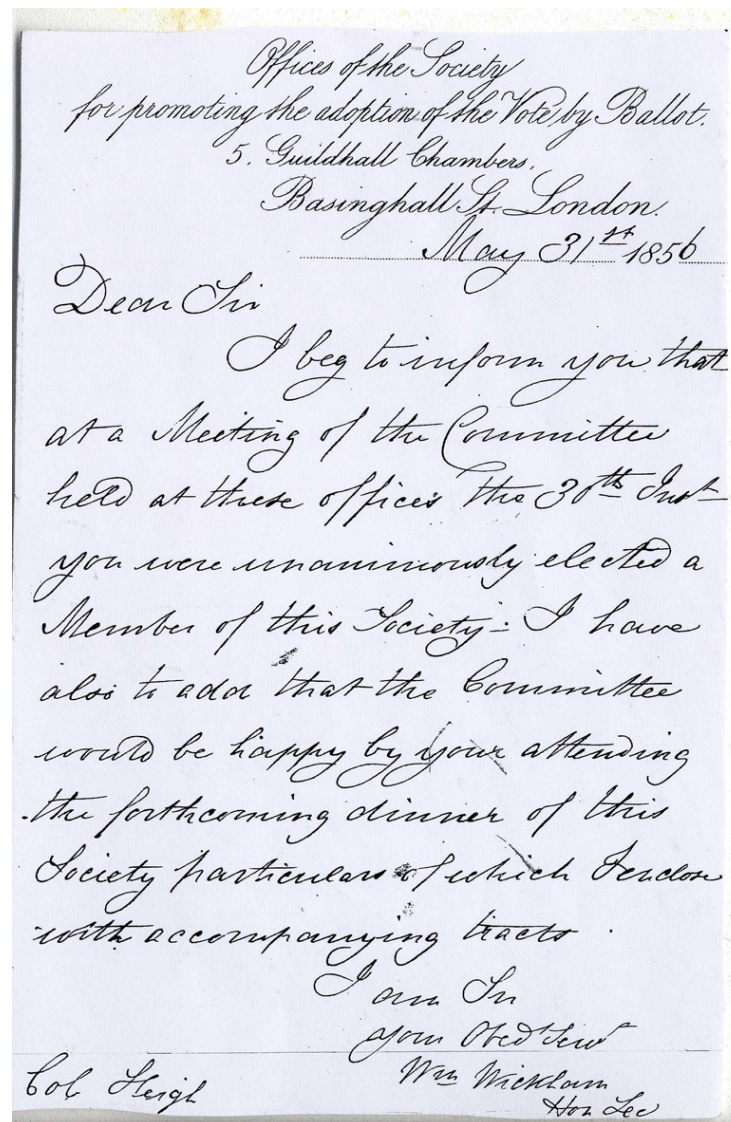 Offices of the Society
for promoting the adoption of the Vote by Ballot.
5. Guildhall Chambers,
Basinghall St. London.
May 31st 1856
Dear Sir
I beg to inform you that
at a Meeting of the Committee
held at these offices the 30th Inst
you were unanimously elected a
Member of this Society - I have
also to add that the Committee
would be happy by your attending
the forthcoming dinner of this
Society particulars of which I enclose
with accompanying tracts.
I am Sir
your Obed Servt
Wm Wickham
Hon Sec
Col Sleigh